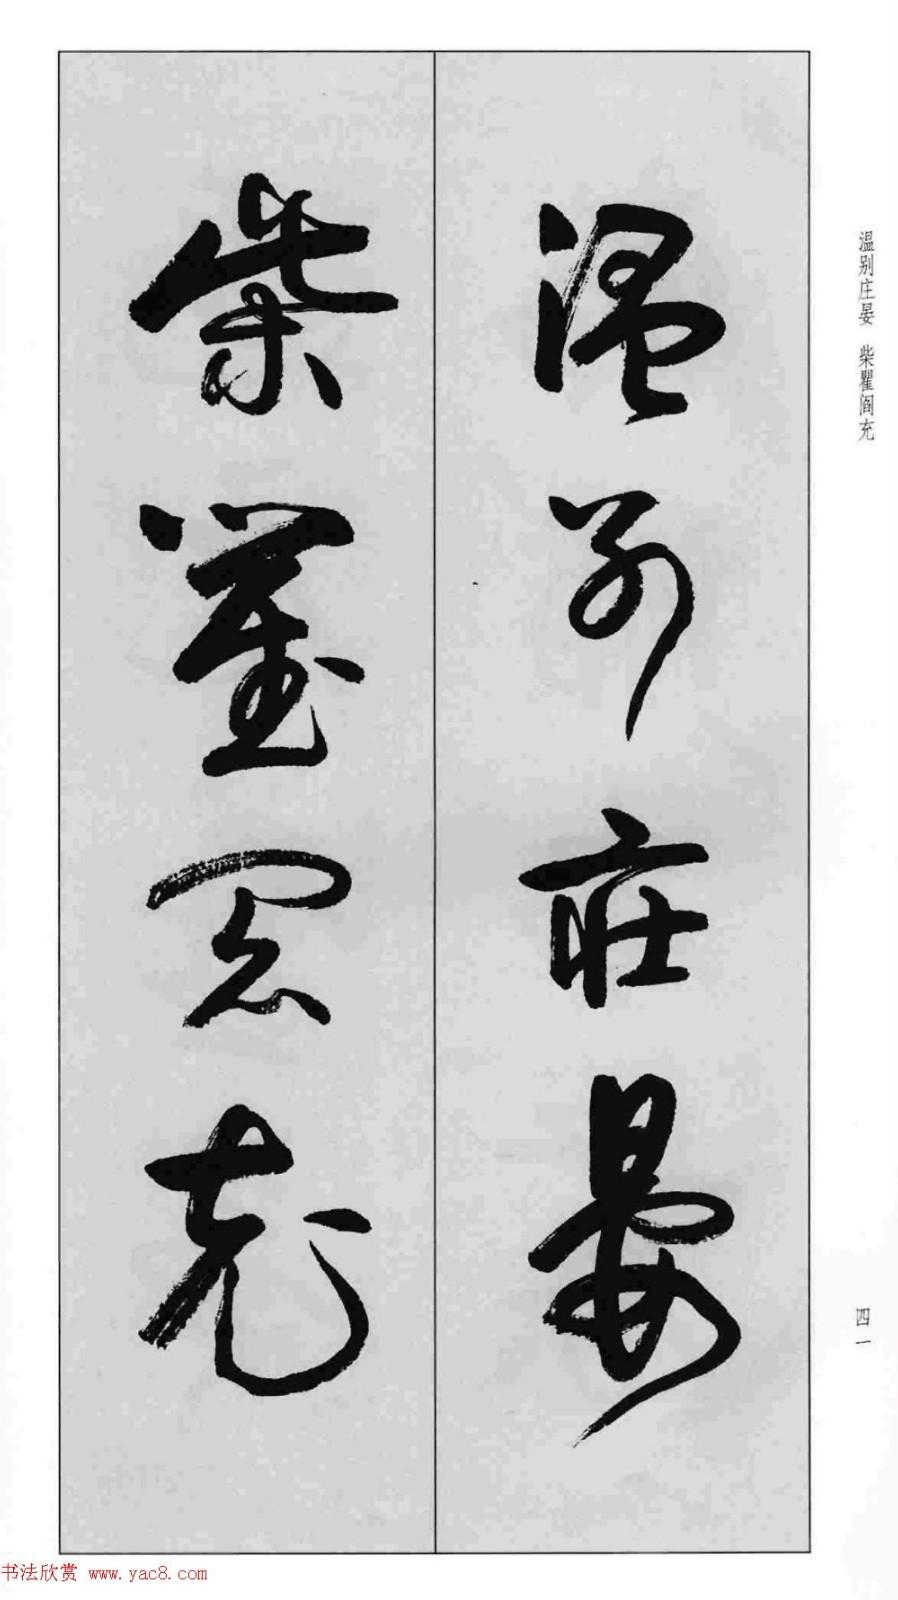 温别庄晏 柴瞿阎充
温别莊晏
柴瞿阎充
四一
书法欣赏 www.yac8.com